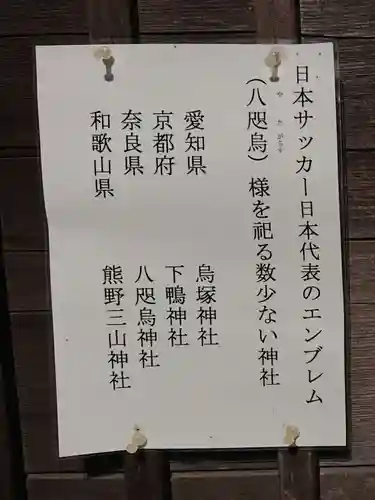 日本サッカー日本代表のエンブレム
(八咫烏)様を祀る数少ない神社
やたがらす
愛知県 烏塚神社
京都府 下鴨神社
奈良県 八咫烏神社
和歌山県 熊野三山神社